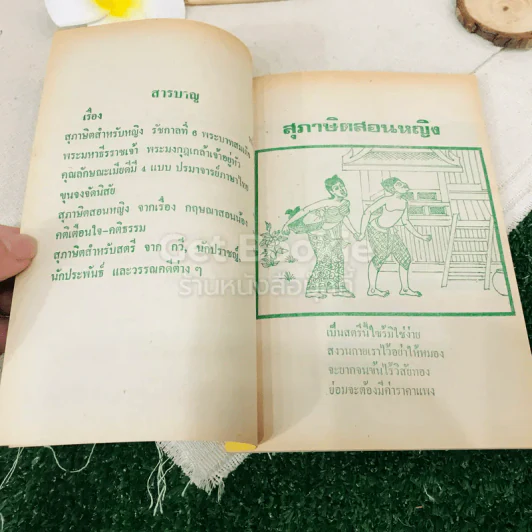 สารบาญ
เรื่อง
สุภาษิตสำหรับหญิง รัชกาลที่ ๖ พระบาทสมเด็จ
พระมหาธีรราชเจ้า พระมงกุฎเกล้าเจ้าอยู่หัว
คุณลักษณะเมียดีมี ๔ แบบ ปรมาจารย์ภาษาไทย
ขุนจงจัดนิสัย
สุภาษิตสอนหญิง จากเรื่อง กฤษณาสอนน้อง
คติเตือนใจ-คติธรรม
สุภาษิตสำหรับสตรี จาก กวี นักปราชญ์
นักประพันธ์ และวรรณคดีต่าง ๆ
สุภาษิตสอนหญิง
Got Book
ร้านหนังสือ
เป็นสตรีนี้ใช่ว่ามิใช่ง่าย
สงวนกายเราไว้อย่าให้หมอง
จะยากจนข้นไร้วิสัยทอง
ย่อมจะต้องมีค่าราคาแพง